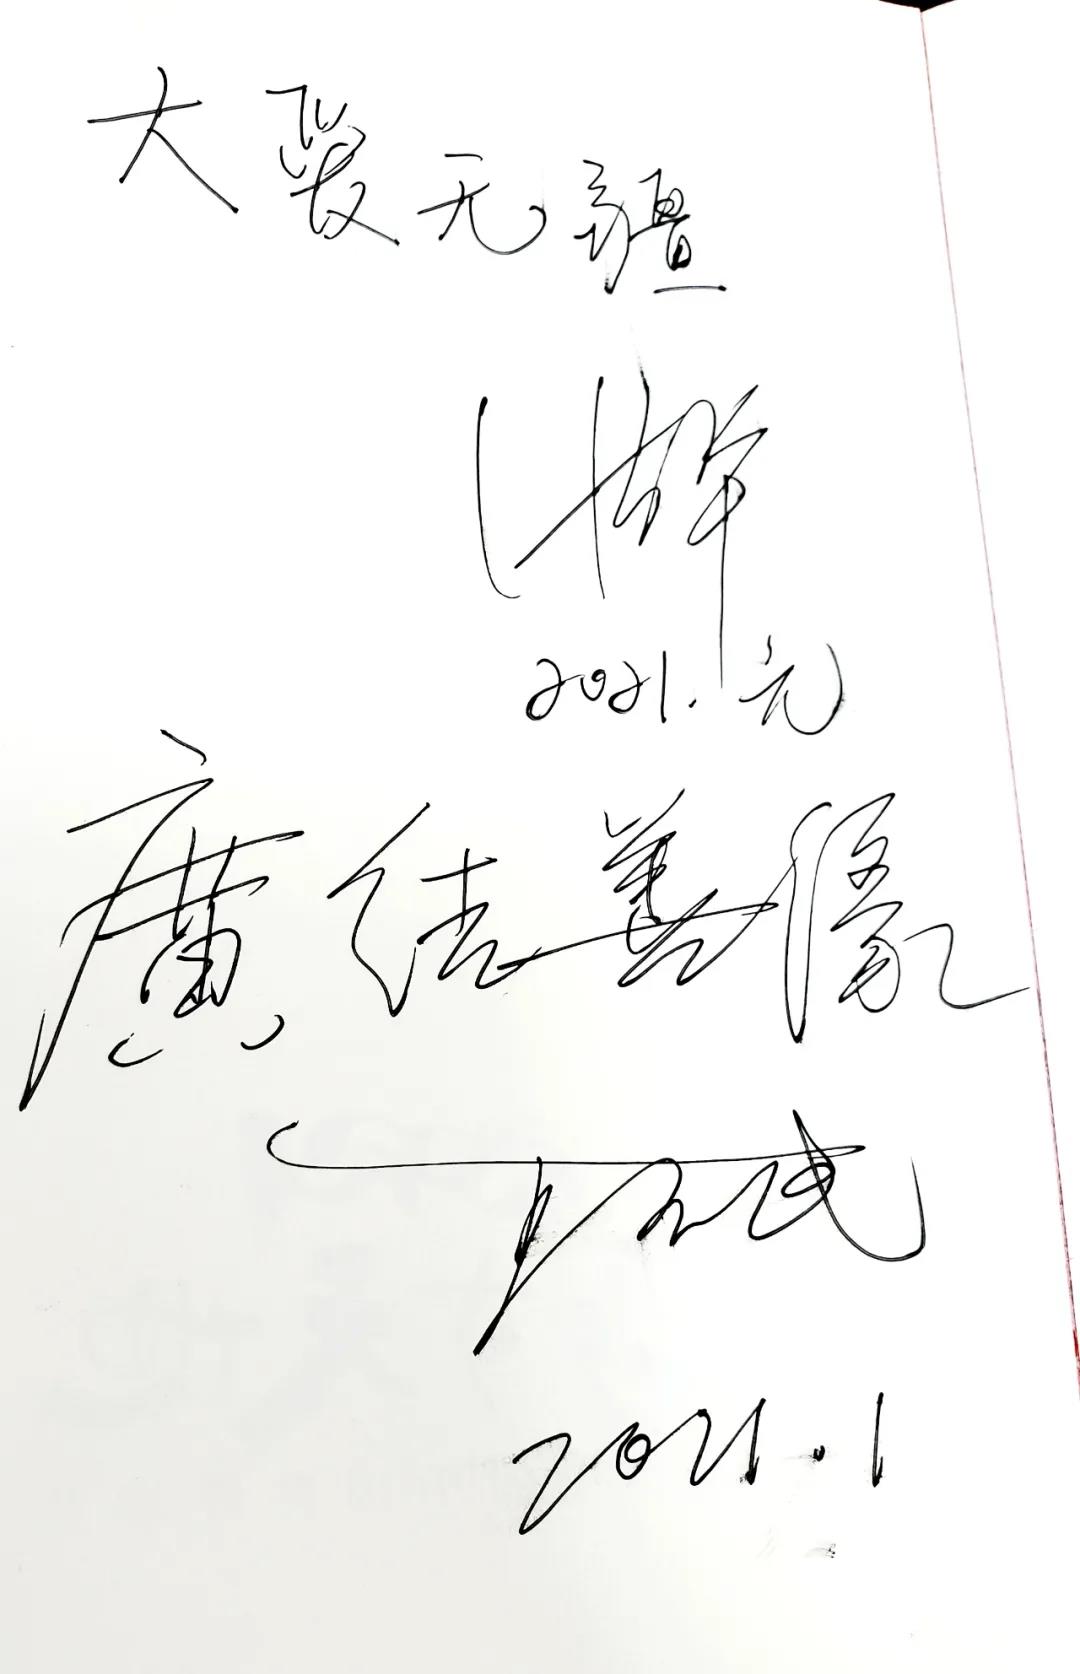 大爱无疆
2021.元
廣结善缘
2021.1